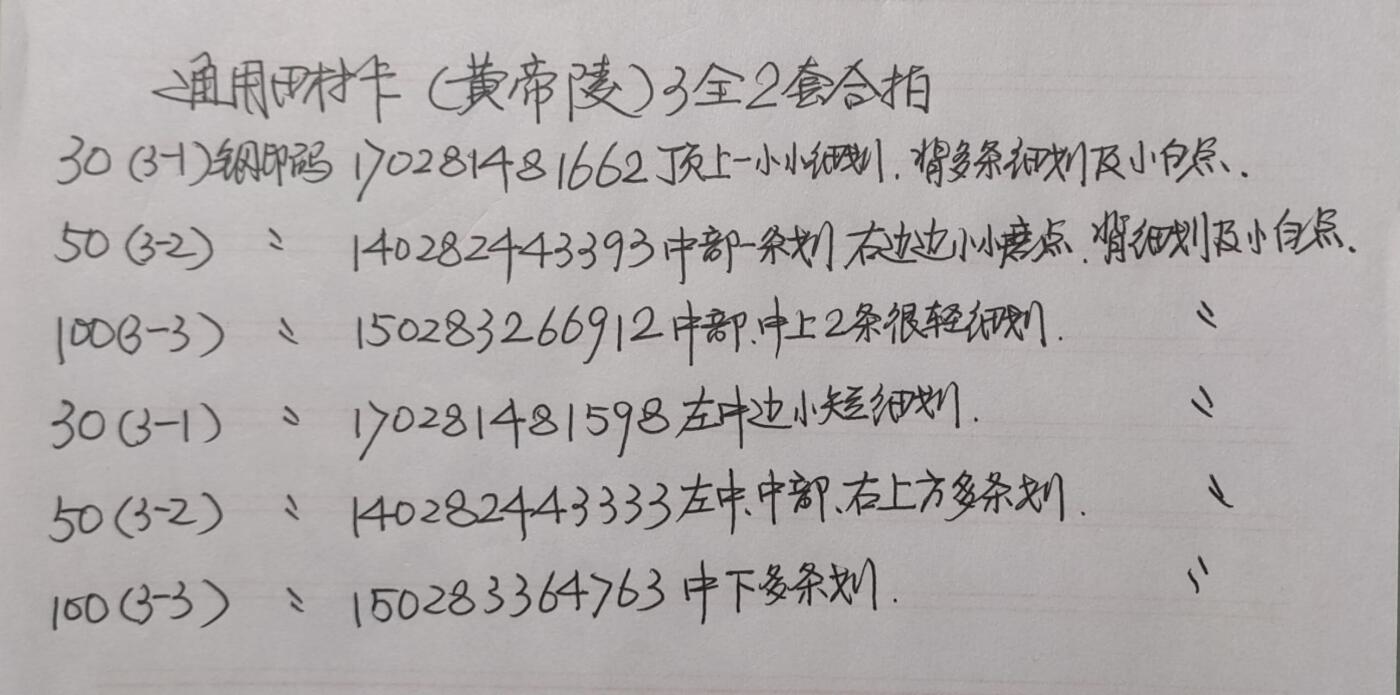 通用田村卡(黄帝陵)3全2套合拍
30(3-1)钢印码 170281481662顶上一小小细划.背多条细划及小白点.
50(3-2) 〃 140282443393中部一条划 右边边小小磨点.背细划及小白点.
100(3-3) 〃 150283266912中部.中上2条很轻细划. 〃
30(3-1) 〃 170281481598左中边小短细划. 〃
50(3-2) 〃 140282443333左中.中部.右上方多条划. 〃
100(3-3) 〃 150283364763中下多条划. 〃